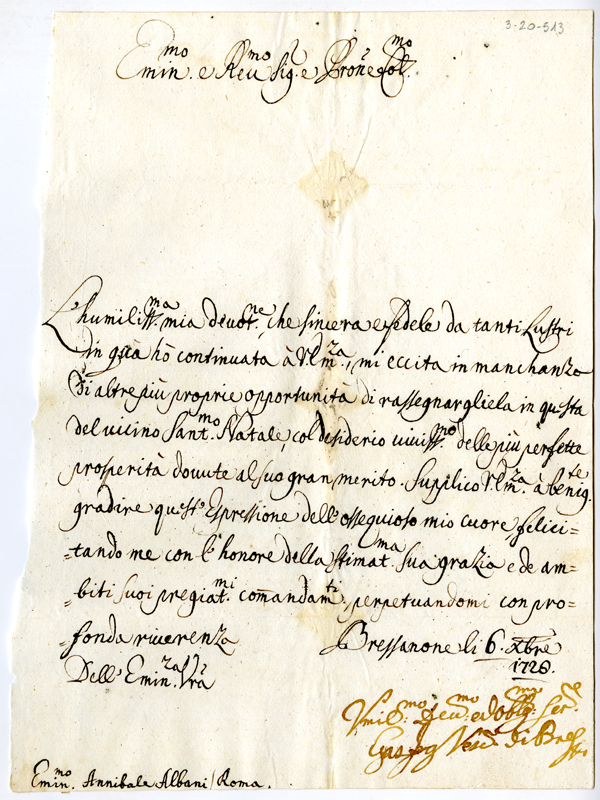 3-20-513
Emin.mo e Reu.mo Sig.r e Prone Col.mo
L'humiliss.ma mia deuot.ne, che sincera e fedele da tanti Lustri
in quà hò continuata à V. Em.za, mi eccita in manchanza
di altre più proprie opportunità di rassegnargliela in questa
del uicino Sant.mo Natale, col desiderio uiuiss.mo delle più perfette
prosperità douute al suo gran merito. Supplico V. Em.za à benig.te
gradire quest' Espressione dell'ossequioso mio cuore felici=
=tando me con l'honore della stimat.ma sua grazia e de am=
=biti suoi pregiat.mi comandam.ti, perpetuandomi con pro=
=fonda riuerenza
Bressanone li 6. Xbre
1728.
Dell' Emin.za Vra
Vmil.mo Deu.mo ed Obblig.mo Ser.re
Vesc.o di Bress.ne
Emin.mo Annibale Albani / Roma.